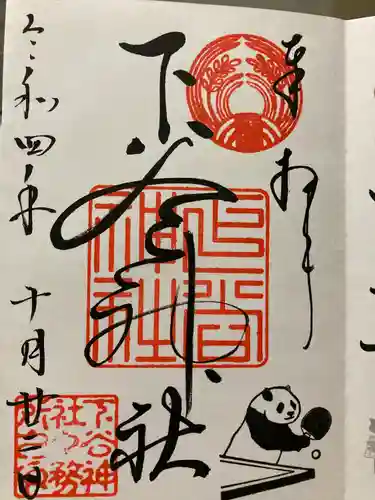 奉拝
下谷神社
下谷神社
令和四年 十月廿二日
下谷神
社社務
所印